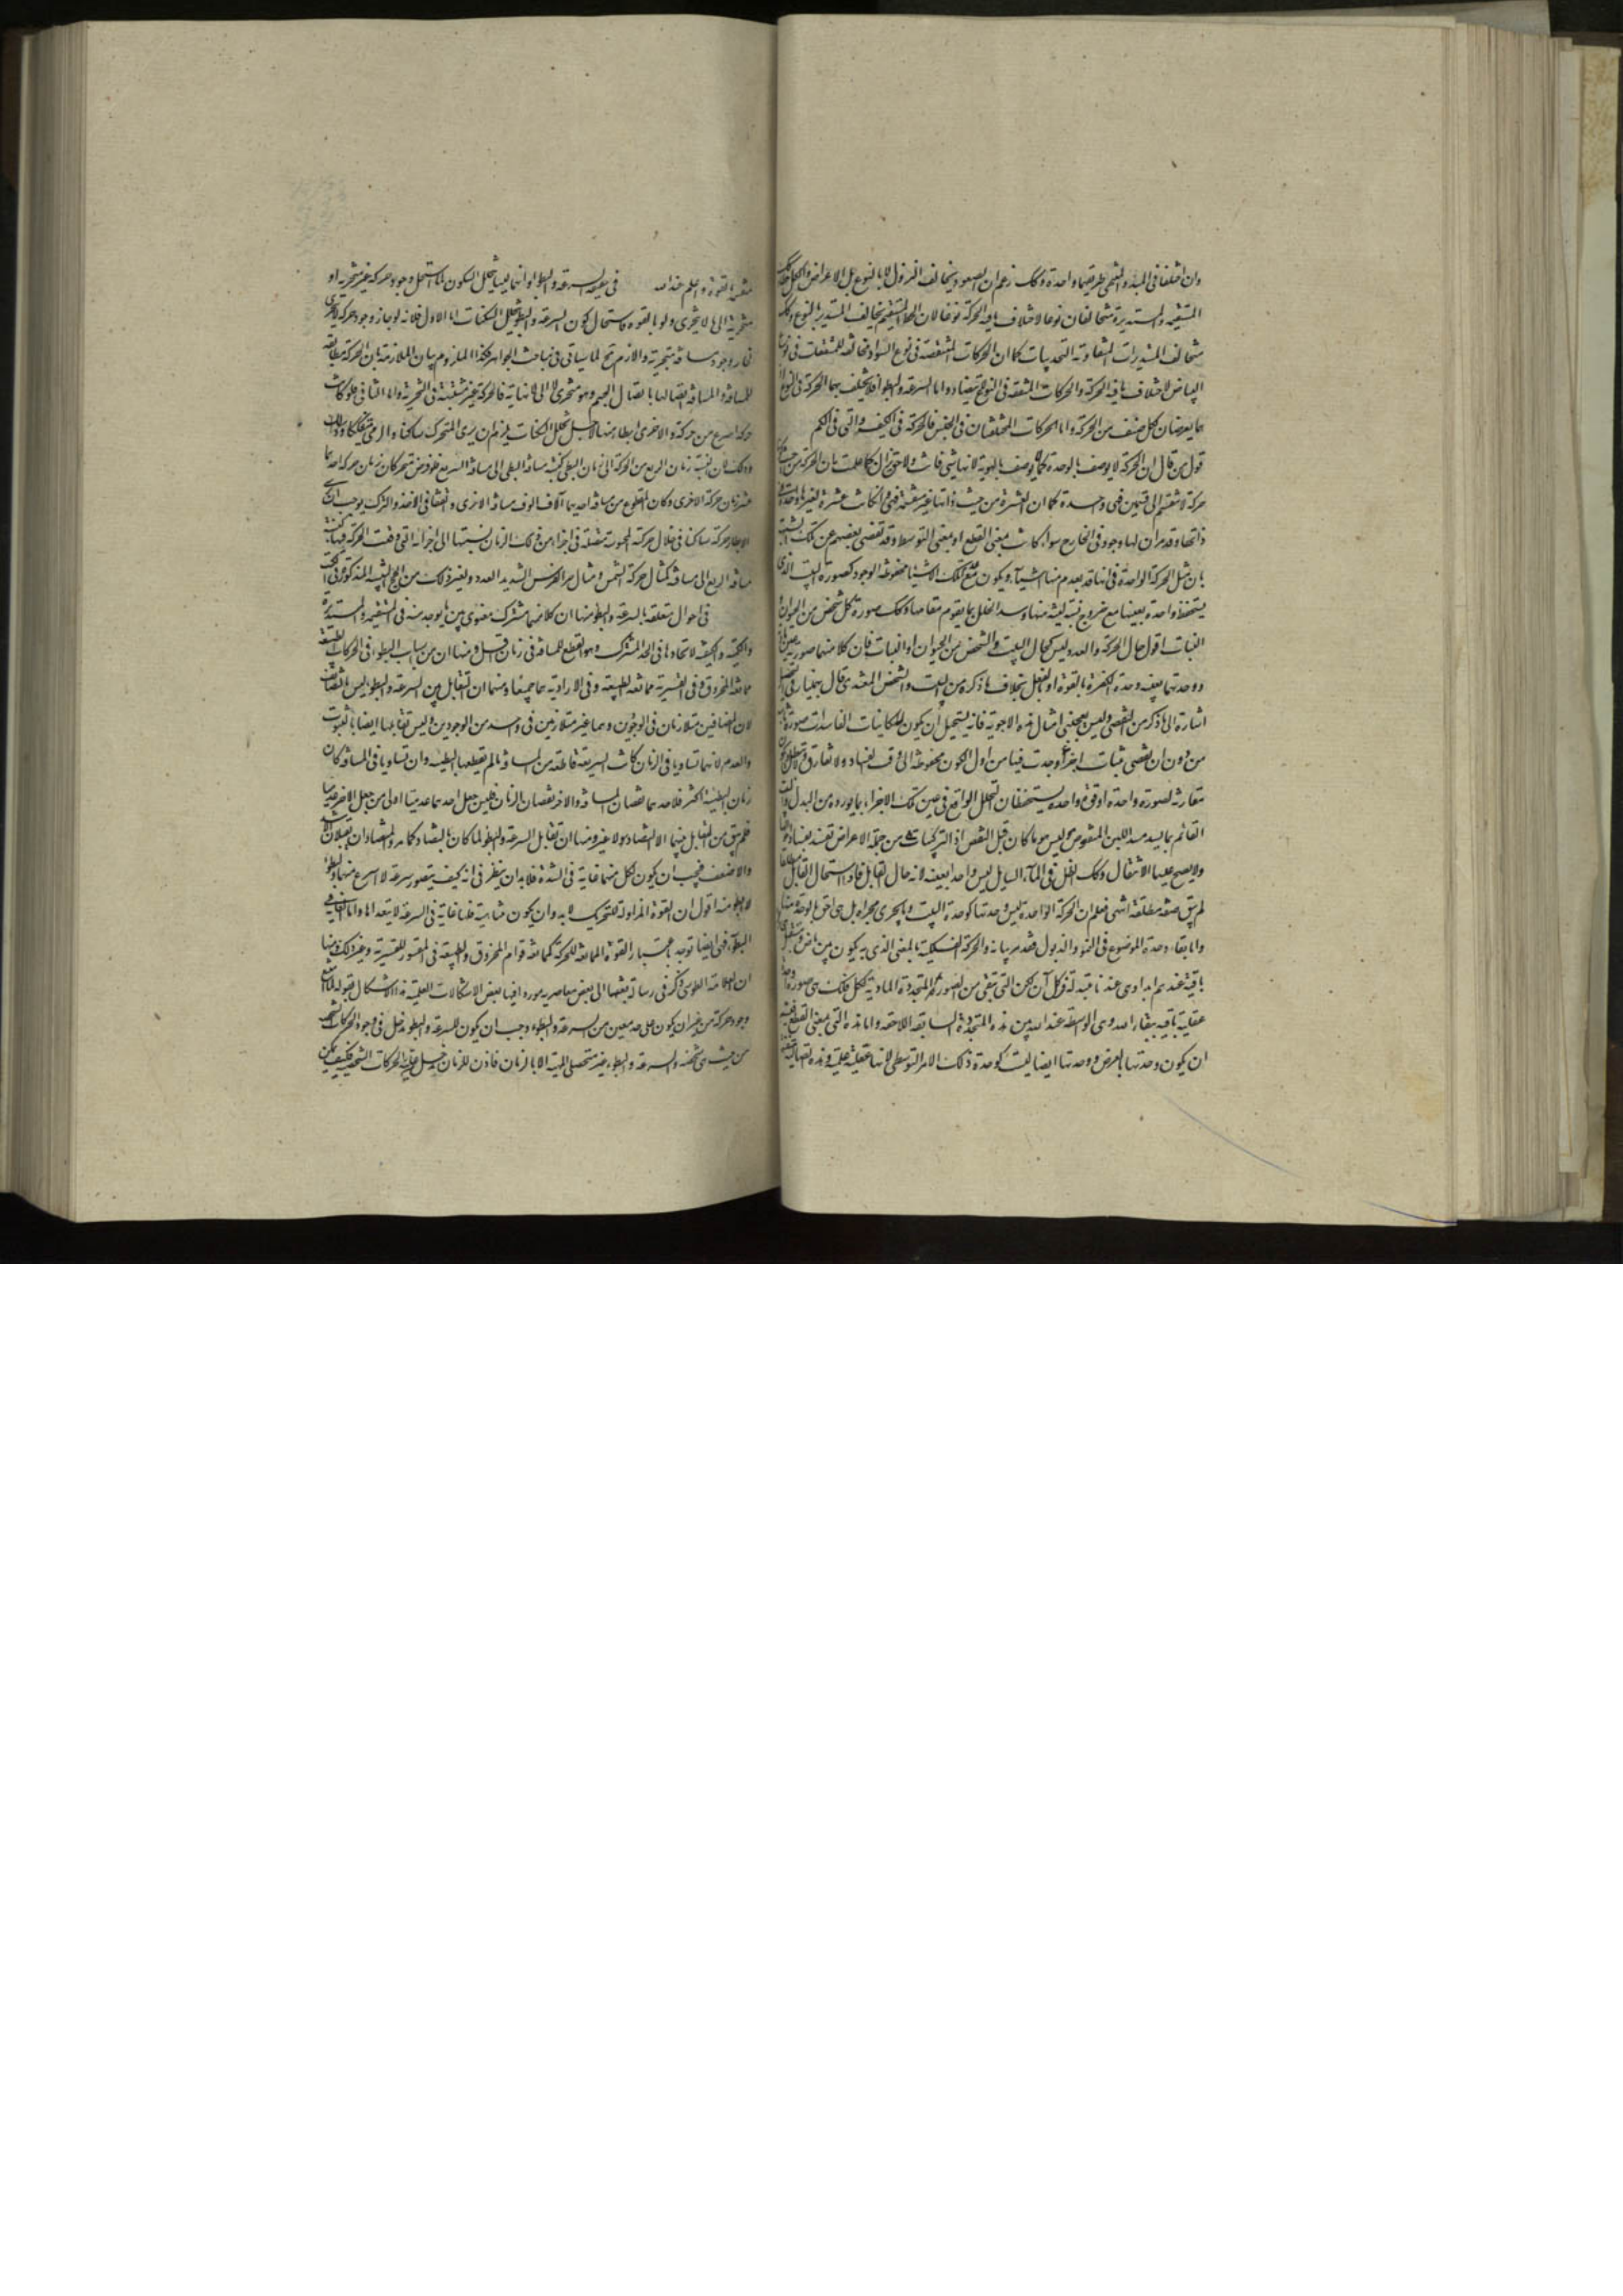 وان اختلفا فى المبدء والمنتهى طريقهما واحدة وكك زعم ان الصعود يخالف النزول لا بالنوع بل الاعراض
المستقيمة والمستديرة متخالفان نوعا لاختلاف ما فيه الحركة نوعا لان الخط المستقيم يخالف المستدير بالنوع وكك
متخالف المستديرات المتفاوتة التحديبات كما ان الحركات المتفقة فى نوع السواد مخالفة للمتفقات فى نوع
البياض لاختلاف ما فيه الحركة والحركات المتفقة فى النوع لا يتضاد واما السرعة والبطوء فلا يختلف بهما الحركة فى النوع
بما يعرضان لكل صنف من الحركة واما الحركات المختلفتان فى الجنس فالحركة فى الكيف والتى فى الكم
قول من قال ان الحركة لا يوصف بالوحدة كما لا يوصف بالهوية لانها شئ فائت ولاحق اذ كما علمت بان الحركة من حيث
حركة لا تنقسم الى قسمين فهى واحدة كما ان العشرة من حيث ذاتها غير منقسمة فهى وان كانت عشرة لغيرها واحدة
ذاتها وقد مر ان لها وجود فى الخارج سواء كانت بمعنى القطع او بمعنى التوسط وقد تفصى بعضهم عن تلك الشبهة
بان مثل الحركة الواحدة فى انها قد يعدم منها اشياء ويكون مع تلك الاشياء محفوظة الوجود كصورة البيت الذى
يستحفظ واحدة بعينها مع خروج لبنة لبنة منها وسد الخلل بما يقوم مقامها وكك صورة كل شخص من الحيوان و
النبات اقول حال الحركة والعدد ليس كحال البيت والشخص من الحيوان او النبات فان كلا منهما صورته
ووحدتهما بعينه وحدة الكثرة بالقوة او بالفعل بخلاف ما ذكره من البيت والشخص المغتذى قال بهمنيار فى التحصيل
اشارة الى ما ذكر من التفصى وليس يعجبنى امثال هذه الاجوبة فانه يستحيل ان يكون للكاينات الفاسدات صورة ثابتة
من دون ان تفصى ثبات اجزاء وجدت فيها من اول الكون محفوظة الى وقت الفساد ولا تفارق
مقارنة لصورة واحدة او قوة واحدة يستحفظان التحلل الواقع فى عين تلك الاجزاء بما يورده من البدل
القائم بما يسد مسد اللبن المنقوص وليس هو ما كان قبل النقص اذ التركيبات من جملة الاعراض تفسد بفساد
ولا يصح عليها الانتقال وكك الظل فى الماء السايل ليس واحدا بعينه لانه حال القابل فاذا استحال القابل
لم يبق صفة مطلقة انتهى فعلم ان الحركة الواحدة ليس وحدتها كوحدة البيت وما يجرى مجراه بل هى احق بالوحدة منها
واما بقاء وحدة الموضوع فى النمو والذبول فقد مر بيانه والحركة الفلكية بالمعنى الذى به يكون بين ماض ومستقبل
باقية عندهم ابدا وهى عندنا متبدلة فى كل آن لكن التى تبقى من الصور المتجددة المادية لكل فلك هى صورة
عقلية باقية ببقاء الله وهى الواسطة عند الله بين هذه المتجددة السابقة اللاحقة واما هذه التى بمعنى القطع
ان يكون وحدتها بالعرض ووحدتها ايضا ليست كوحدة ذلك الامر التوسطى لانها عقلية علمية وهذه
بالقوة والعلم عند الله فى حقيقة السرعة والبطوء وانهما ليسا بتخلل السكون لما استحال وجود حركة غير متجزية او
متجزية الى ما لا يتجزى ولو بالقوة فاستحال كون السرعة والبطوء بتخلل السكنات اما الاول فلانه لو جاز وجود حركة لا يتجزى
لجاز وجود مسافة لا متجزية واللازم مح لما سياتى فى مباحث الجواهر فكذا الملزوم بيان الملازمة بان الحركة مطابقة
للمسافة والمسافة اتصالها باتصال الجسم وهو متجزى لا الى نهاية فالحركة غير منتهية فى التجزية واما الثانى فلو كانت
حركة اسرع من حركة والاخرى ابطا منها لاجل تخلل السكنات يلزم ان يرى المتحرك ساكنا والرحى متفككا
وذلك لان نسبة زمان السريع من الحركة الى زمان البطى كنسبة مسافة البطى الى مسافة السريع فلو فرض متحركان زمان حركة احدهما
عشر زمان حركة الاخرى وكان المقطوع من مسافة احديهما آلاف الوف مسافة الاخرى واتفقا فى الاخذ والترك يوجب ان يرى
الابطاء حركة ساكنا فى خلال حركة المحسوسة متصلة فى اجزاء من ذلك الزمان نسبتها الى اجزائه التى وقعت الحركة فيها كنسبة
مسافة السريع الى مسافته مثال حركة الشمس ومثال مر الفرس الشديد العدو ولغير ذلك من الحجج البينة المذكورة فى الكتب
فى احوال متعلقة بالسرعة والبطوء منها ان كلا منهما مشترك معنوى بين ما يوجد منه فى المستقيمة والمستديرة
والكمية والكيفية لاتحادها فى الحد المشترك وهو القطع للمسافة فى زمان قليل ومنها ان من اسباب البطوء فى الحركات الطبيعية
ممانعة المخروق وفى القسرية ممانعة الطبيعة وفى الارادية هما جميعا ومنها ان التقابل بين السرعة والبطوء ليس بالتضايف
لان المضافين متلازمان فى الوجودين وهما غير متلازمين فى واحد من الوجودين وليس تقابلهما ايضا بالثبوت
والعدم لانهما تساويا فى الزمان كانت السريعة قاطعة من المسافة ما لم تقطعها البطيئة وان تساويا فى المسافة كان
زمان البطيئة اكثر فلاحدهما نقصان المسافة والاخر نقصان الزمان فليس جعل احدهما عدميا اولى من جعل الاخر عدميا
فلم يبق من التقابل بينهما الا التضاد لا غير ومنها ان تقابل السرعة والبطوء لما كان بالتضاد كما مر والمتضادان يقبلان الاشد
والاضعف فيجب ان يكون لكل منهما غاية فى الشدة فلا بد ان ينظر فى انه كيف يتصور سرعة لا اسرع منها وبطوء
لا ابطا منه اقول ان القوة المزاولة للتحريك لابد وان يكون متناهية فلها غاية فى السرعة لا يتعداها واما الغاية فى
البطء فهى ايضا توجد باعتبار القوة الممانعة للحركة كممانعة قوام المخروق والطبيعة فى المقسور للقسرية وغير ذلك ومنها
ان العلامة الطوسى ذكر فى رسالة بعثها الى بعض معاصريه موردا فيها بعض الاشكالات العلمية هذا الاشكال بقوله لما امتنع
وجود حركة من غير ان يكون على حد معين من السرعة والبطوء وجب ان يكون للسرعة والبطوء مدخل فى وجود الحركات الشخصية
من حيث هى شخصية والسرعة والبطوء غير متحصلى الماهية الا بالزمان فاذن للزمان مدخل فى علية الحركات الشخصية فكيف يمكن